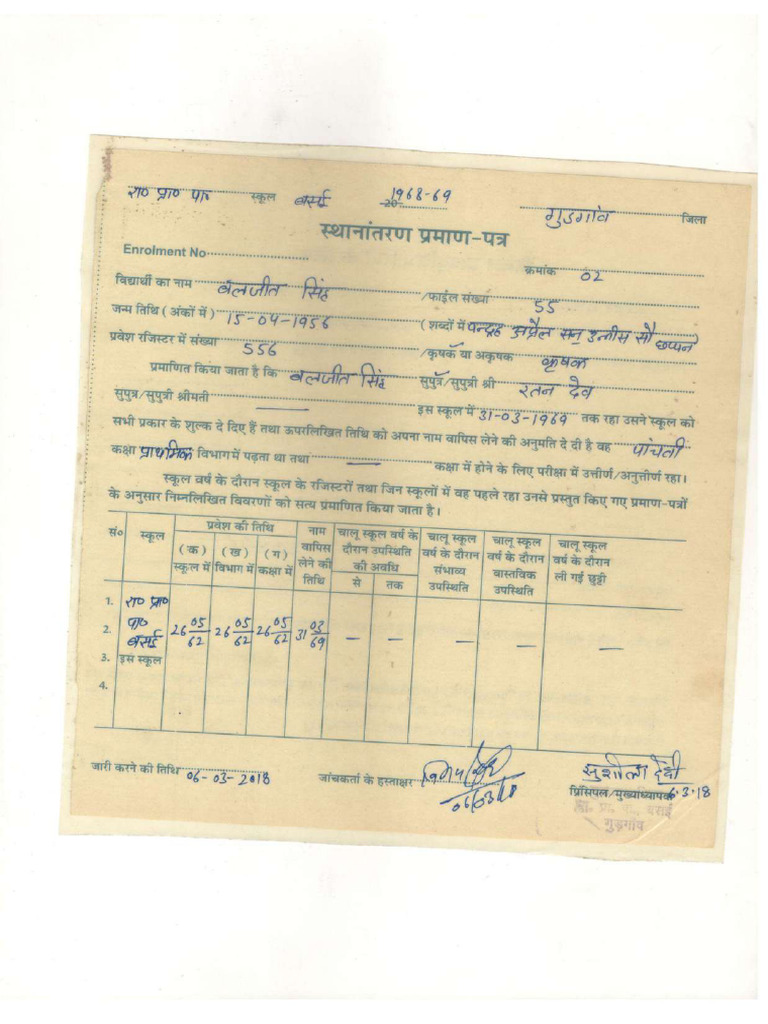 रा० प्रा० पा० स्कूल बसई 1968-69 गुडगांव जिला
20
स्थानांतरण प्रमाण-पत्र
Enrolment No
क्रमांक 02
विद्यार्थी का नाम बलजीत सिंह /फाईल संख्या 55
जन्म तिथि ( अंकों में ) 15-04-1956 ( शब्दों में पन्द्रह अप्रैल सन् उन्नीस सौ छप्पन )
प्रवेश रजिस्टर में संख्या 556 /कृषक या अकृषक कृषक
प्रमाणित किया जाता है कि बलजीत सिंह सुपुत्र/सुपुत्री श्री रतन देव
सुपुत्र/सुपुत्री श्रीमती — इस स्कूल में 31-03-1969 तक रहा उसने स्कूल को
सभी प्रकार के शुल्क दे दिए हैं तथा ऊपरलिखित तिथि को अपना नाम वापिस लेने की अनुमति दे दी है वह पांचवी
कक्षा प्राथमिक विभाग में पढ़ता था तथा — कक्षा में होने के लिए परीक्षा में उत्तीर्ण/अनुत्तीर्ण रहा।
स्कूल वर्ष के दौरान स्कूल के रजिस्टरों तथा जिन स्कूलों में वह पहले रहा उनसे प्रस्तुत किए गए प्रमाण-पत्रों
के अनुसार निम्नलिखित विवरणों को सत्य प्रमाणित किया जाता है।
सं० स्कूल प्रवेश की तिथि नाम वापिस लेने की तिथि चालू स्कूल वर्ष के दौरान उपस्थिति की अवधि चालू स्कूल वर्ष के दौरान संभाव्य उपस्थिति चालू स्कूल वर्ष के दौरान वास्तविक उपस्थिति चालू स्कूल वर्ष के दौरान ली गई छुट्टी
( क ) स्कूल में ( ख ) विभाग में ( ग ) कक्षा में से तक
1. रा० प्रा०
2. पा० बसई 26 05/62 26 05/62 26 05/62 31 03/69 — — — — —
3. इस स्कूल
4.
जारी करने की तिथि 06-03-2018 जांचकर्ता के हस्ताक्षर 06/03/18 सुशीला देवी
प्रिंसिपल/मुख्याध्यापक 6.3.18
गुड़गाँव